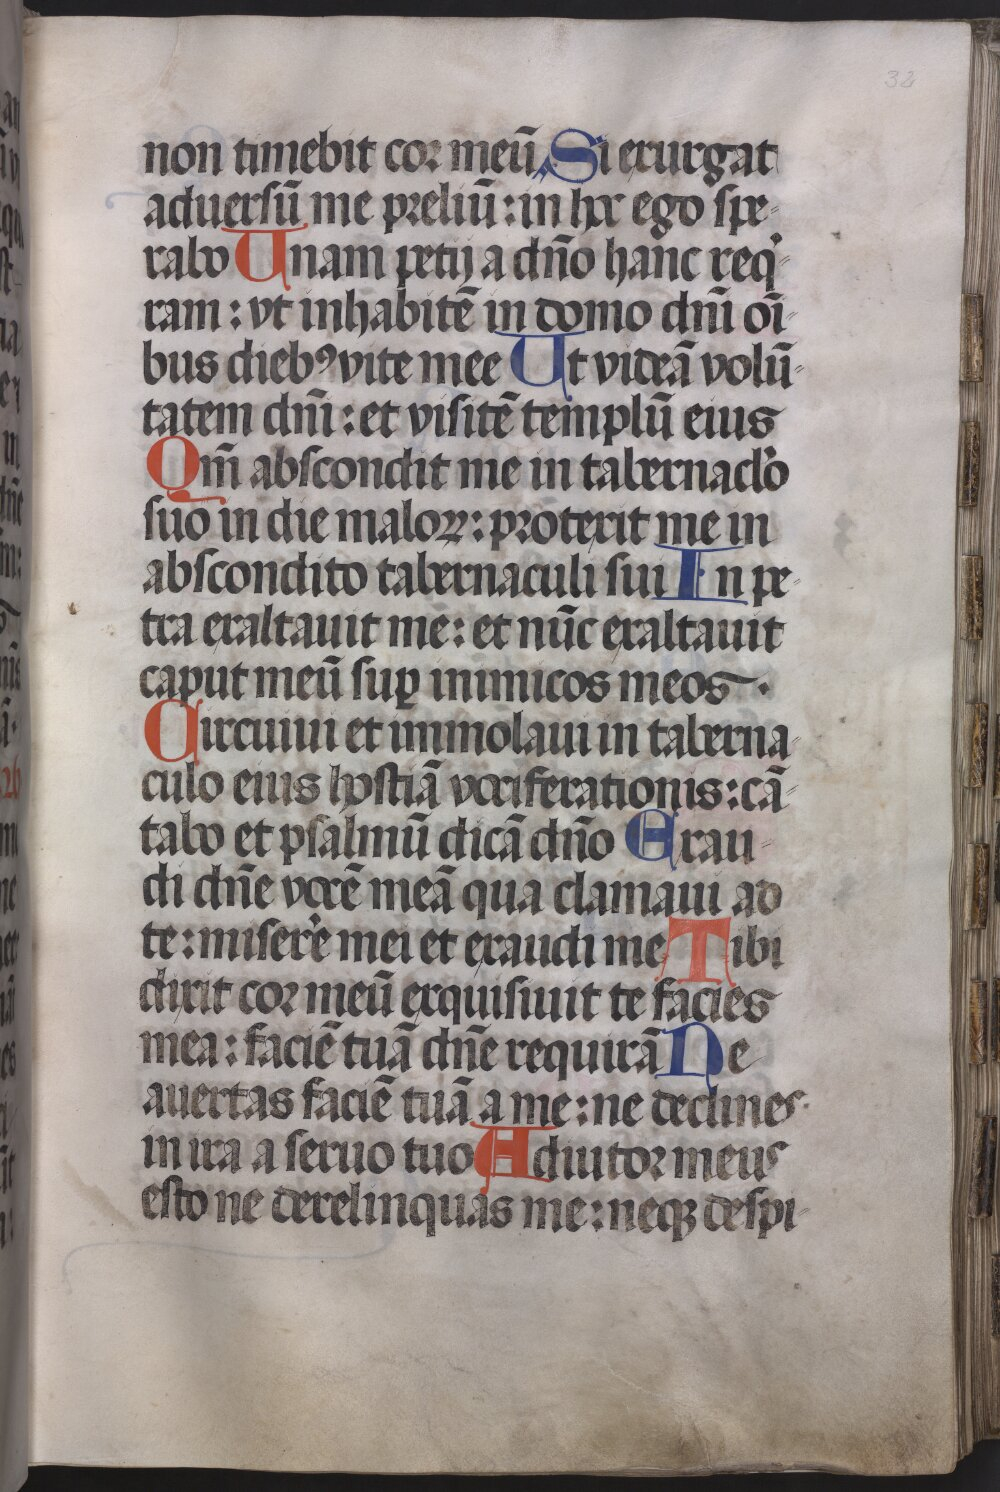 32
non timebit cor meū Si exurgat
adversū me preliū : in hoc ego spe-
rabo Unam petij a dño hanc req̇-
ram : vt inhabitē in domo dñi oī-
bus dieb⁹ vite mee Ut videā volū-
tatem dñi : et visitē templū eius
Qm̄ abscondit me in tabernaclo
suo in die maloꝝ : protexit me in
abscondito tabernaculi sui In pe-
tra exaltauit me : et nūc exaltauit
caput meū suꝑ inimicos meos .
Circuiui et immolaui in taberna-
culo eius hostiā vociferationis : cā-
tabo et psalmū dicā dño Exau-
di dñe vocē meā qua clamaui ad
te : miserͤe mei et exaudi me Tibi
dixit cor meū exquisiuit te facies
mea : faciē tuā dñe requirā Ne
auertas faciē tuā a me : ne declines
in ira a seruo tuo Adiutor meus
esto ne derelinquas me : neqꝫ despi-